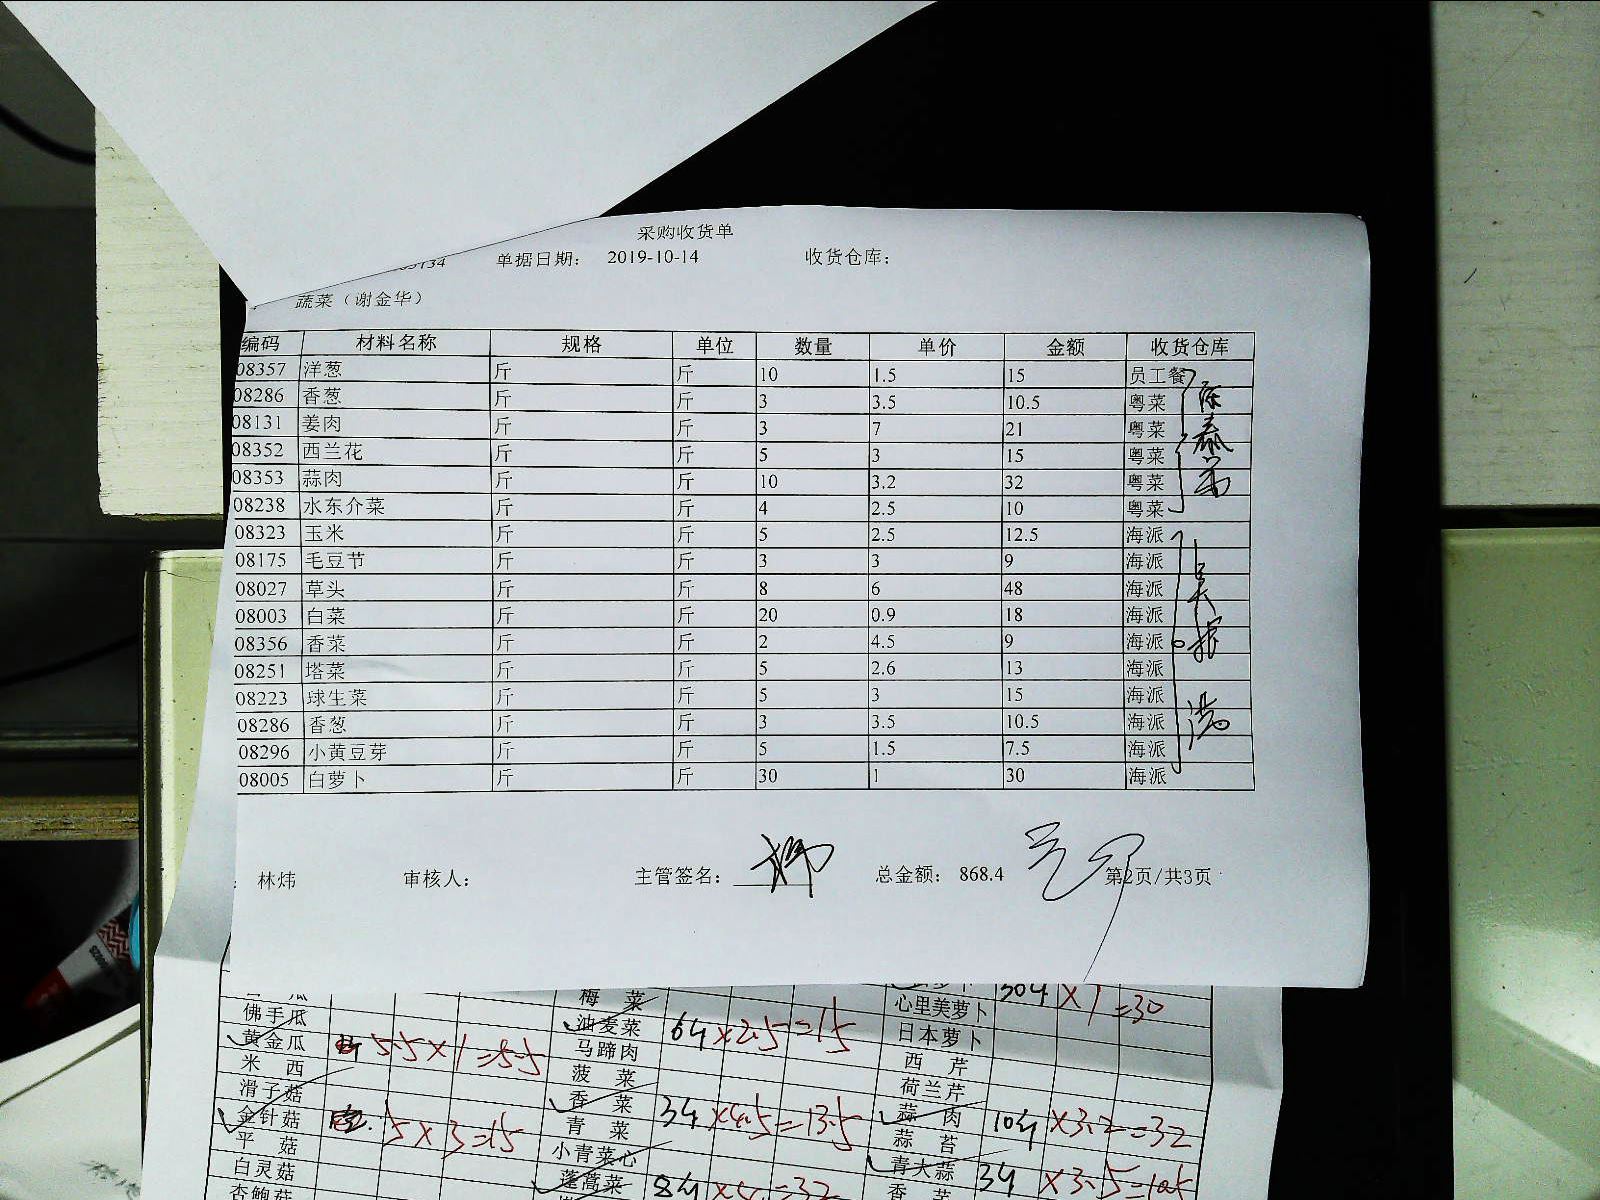 采购收货单
单据日期： 2019-10-14 收货仓库：
蔬菜（谢金华）
编码 材料名称 规格 单位 数量 单价 金额 收货仓库
08357 洋葱 斤 斤 10 1.5 15 员工餐
08286 香葱 斤 斤 3 3.5 10.5 粤菜
08131 姜肉 斤 斤 3 7 21 粤菜
08352 西兰花 斤 斤 5 3 15 粤菜
08353 蒜肉 斤 斤 10 3.2 32 粤菜
08238 水东介菜 斤 斤 4 2.5 10 粤菜
08323 玉米 斤 斤 5 2.5 12.5 海派
08175 毛豆节 斤 斤 3 3 9 海派
08027 草头 斤 斤 8 6 48 海派
08003 白菜 斤 斤 20 0.9 18 海派
08356 香菜 斤 斤 2 4.5 9 海派
08251 塔菜 斤 斤 5 2.6 13 海派
08223 球生菜 斤 斤 5 3 15 海派
08286 香葱 斤 斤 3 3.5 10.5 海派
08296 小黄豆芽 斤 斤 5 1.5 7.5 海派
08005 白萝卜 斤 斤 30 1 30 海派
林炜 审核人： 主管签名： 总金额： 868.4 第2页/共3页
梅菜 心里美萝卜 30斤 ×1=30
佛手瓜 油麦菜 6斤 ×2.5=15 日本萝卜
黄金瓜 5.5×1=5.5 马蹄肉 西芹
米西 菠菜 荷兰芹
滑子菇 香菜 3斤 ×4.5=13.5 蒜肉 10斤 ×3.2=32
金针菇 5×3=15 青菜 蒜苔
平菇 小青菜心 青大蒜 3斤 ×3.5=10.5
白灵菇 蓬蒿菜 8斤